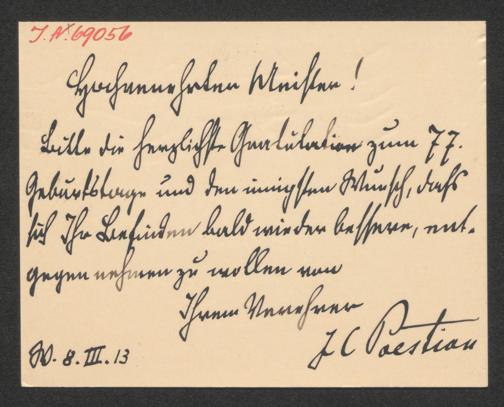 J.N. 69056
Hochverehrter Meister!
Bitte die herzlichste Gratulation zum 77.
Geburtstage und den innigsten Wunsch, dass
sich Ihr Befinden bald wieder bessere, ent-
gegen nehmen zu wollen von
Ihrem Verehrer
J C Poestion
W. 8. III. 13